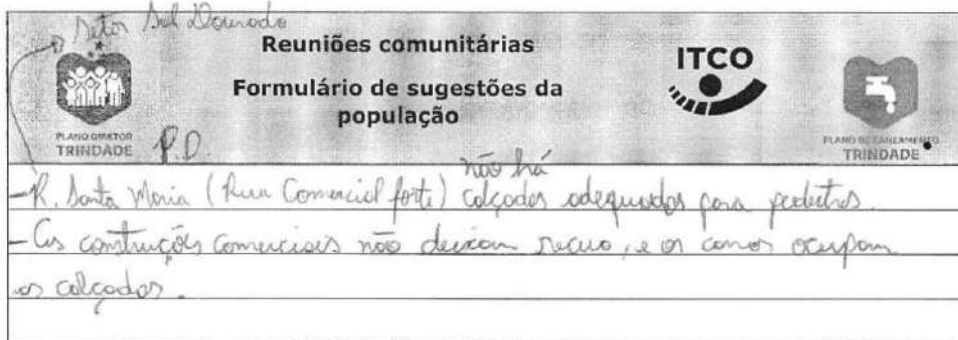 Setor Sol Dourado
Reuniões comunitárias
Formulário de sugestões da
população
PLANO DIRETOR
TRINDADE
P.D.
ITCO
PLANO DE SANEAMENTO
TRINDADE
não há
- R. Santa Maria (Rua Comercial forte) calçadas adequadas para pedestres.
- As construções comerciais não deixam recuo, e os carros ocupam
as calçadas.